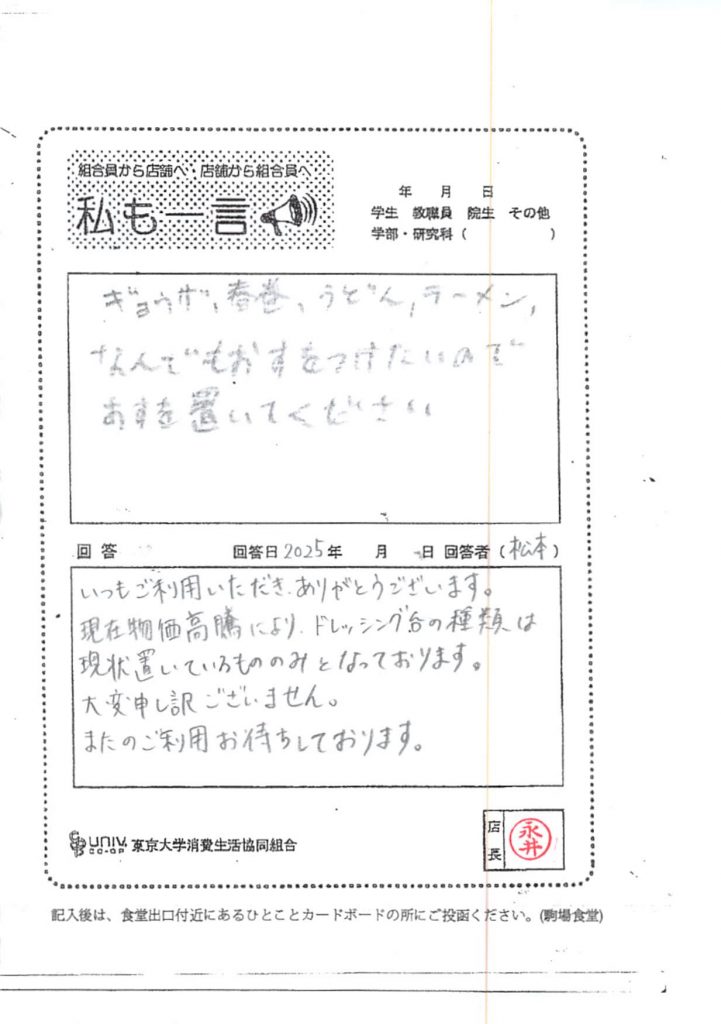 組合員から店舗へ・店舗から組合員へ
私も一言
年 月 日
学生 教職員 院生 その他
学部・研究科( )
ギョウザ, 春巻, うどん, ラーメン,
なんでもおすをつけたいので
おすを置いてください
回答 回答日2025年 月 日 回答者(松本)
いつもご利用いただき、ありがとうございます。
現在物価高騰により、ドレッシング台の種類は
現状置いているもののみとなっております。
大変申し訳ございません。
またのご利用お待ちしております。
UNIV. CO-OP 東京大学消費生活協同組合
店長 永井
記入後は、食堂出口付近にあるひとことカードボードの所にご投函ください。(駒場食堂)